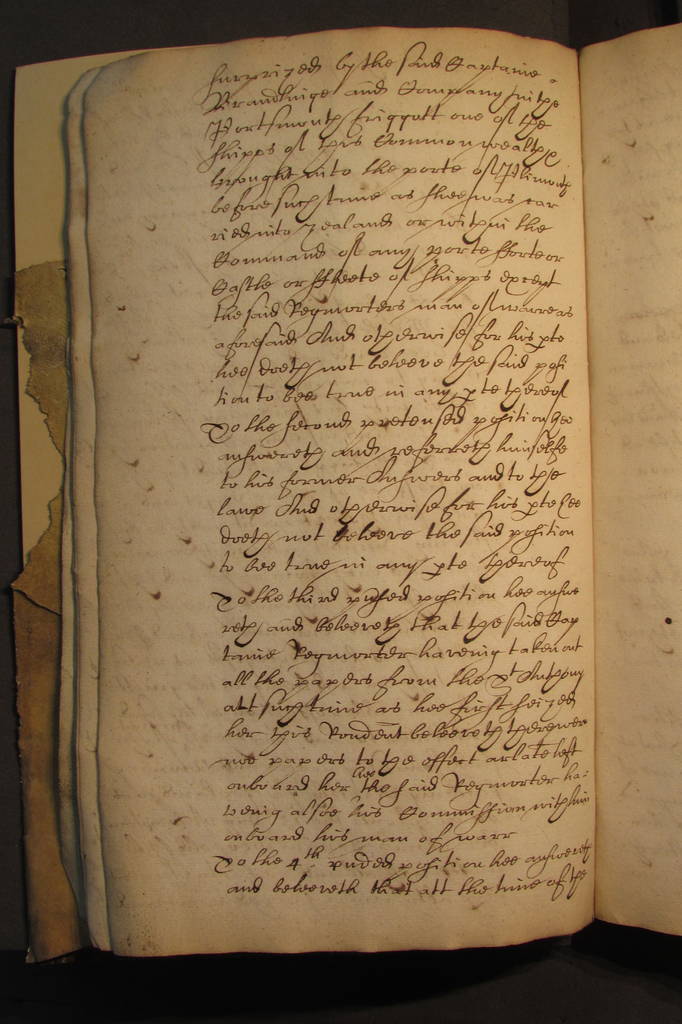 surprized by the said Captaine
Brandlinge and Company in the
Portsmouth friggott one of the
shipps of this Commonwealth
brought into the porte of Plimouth
before such tyme as shee was car
ried into Zealand or within the
Command of any porte fforte or
Castle or ffleete of shipps except
the said Regmorters man of warre as
aforesaid And otherwise for his pte
hee doeth not beleeve the said posi
tion to bee true in any pte thereof
To the second pretensed position hee
answereth and referreth himselfe
to his former Answers and to the
lawe And otherwise for his pte hee
doeth not beleeve the said position
to bee true in any pte thereof
To the third position hee answe
reth and beleeveth that the said Cap
taine Regmorter haveing taken out
all the papers from the St Anthony
att such tyme as hee first seized
her this Rondent beleeveth there were
noe papers to the effect arlate left
onboard her hee the said Regmorter ha:
veing alsoe his Commission with him
onboard his man of warr
To the 4th position hee answereth
and beleeveth that att the time of the